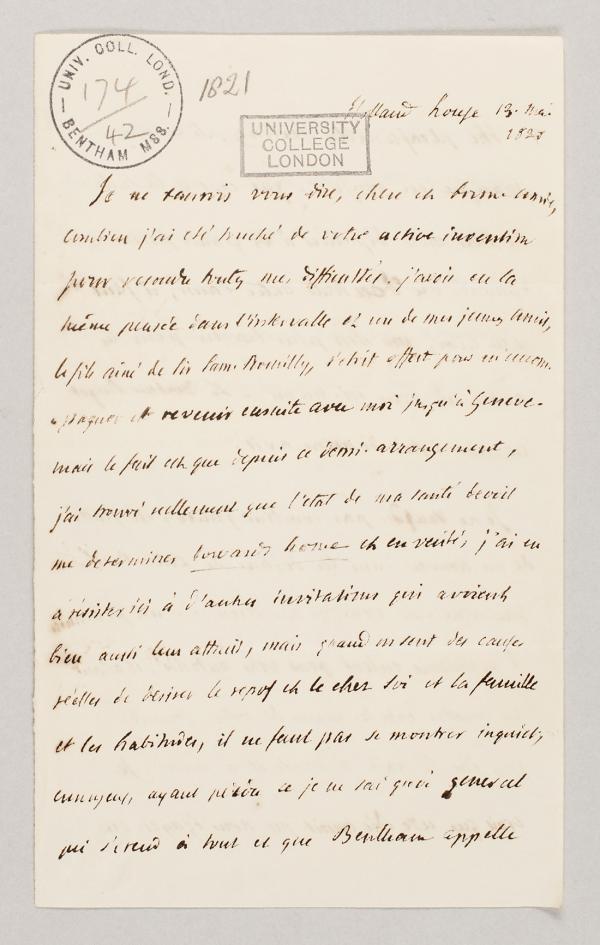 UNIV. COLL. LOND.
BENTHAM MSS.
174
42
1821
UNIVERSITY
COLLEGE
LONDON
Holland house 13. Mai
Je ne saurois vous dire, chere et bonne amie,
combien j'ai été touché de votre active invention
pour resoudre toutes mes difficultés. j'avois eu la
même pensée dans l'intervalle et un de mes jeunes amis,
le fils ainé de Sir Sam. Romilly, s'etoit offert pour m'accom-
-pagner et revenir ensuite avec moi jusqu'à Geneve-
mais le fait est que depuis ce demi-arrangement,
j'ai trouvé reellement que l'etat de ma santé devoit
me determiner towards home et en verité, j'ai eu
à resister ici à d'autres invitations qui avoient
bien aussi leur attrait, mais quand on sent des causes
réelles de desirer le repos et le chez soi et la famille
et les habitudes, il ne faut pas se montrer inquiet,
ennuyeux, ayant perdu ce je ne sai quoi general
qui s'etend à tout et que Bentham appelle